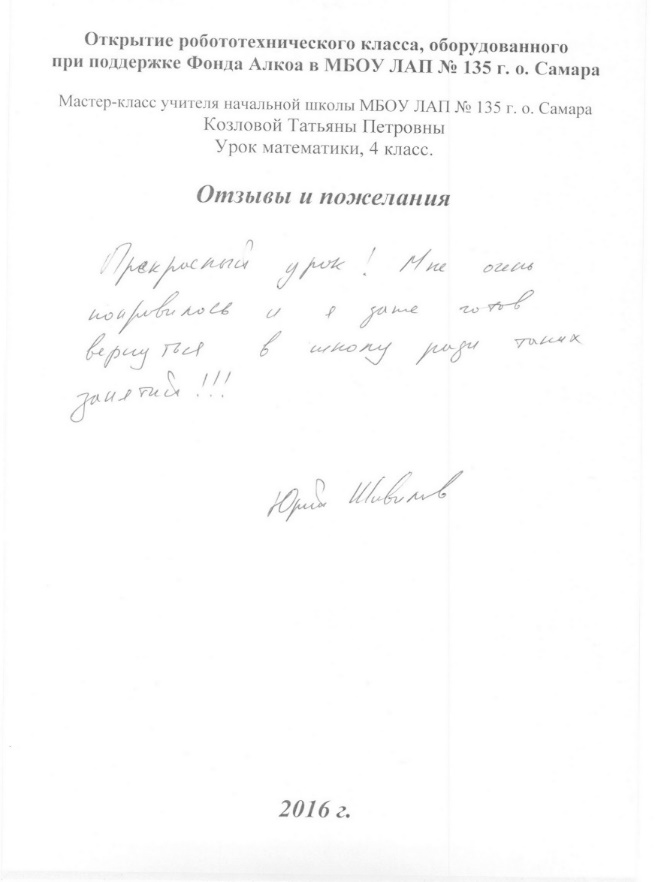 Открытие робототехнического класса, оборудованного
при поддержке Фонда Алкоа в МБОУ ЛАП № 135 г. о. Самара
Мастер-класс учителя начальной школы МБОУ ЛАП № 135 г. о. Самара
Козловой Татьяны Петровны
Урок математики, 4 класс.
Отзывы и пожелания
Прекрасный урок! Мне очень
понравилось и я даже готов
вернуться в школу ради таких
занятий!!!
Юрий
2016 г.